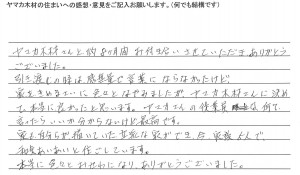 ヤマカ木材の住まいへの感想・意見をご記入お願いします。(何でも結構です)
ヤマカ木材さんと約8ヶ月間お付き合いさせていただきありがとう
ございました。
引き渡しの時は感無量で言葉にならなかったけど
家をきめるまでに色々となやみましたが、ヤマカ木材さんに決め
て本当に良かったと思います。ヤマカさんの従業員 何て
言ったらいいか分からないけど最高です。
家も自分らが描いていた立派な家ができ、今、家族 人で、
和気あいあいと過ごしています。
本当に色々とおせわになり、ありがとうございました。